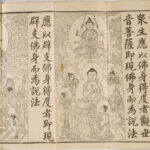 衆生應以佛身得度者觀世
音菩薩即現佛身而為說法
應以辟支佛身得度者即現
辟支佛身而為說法